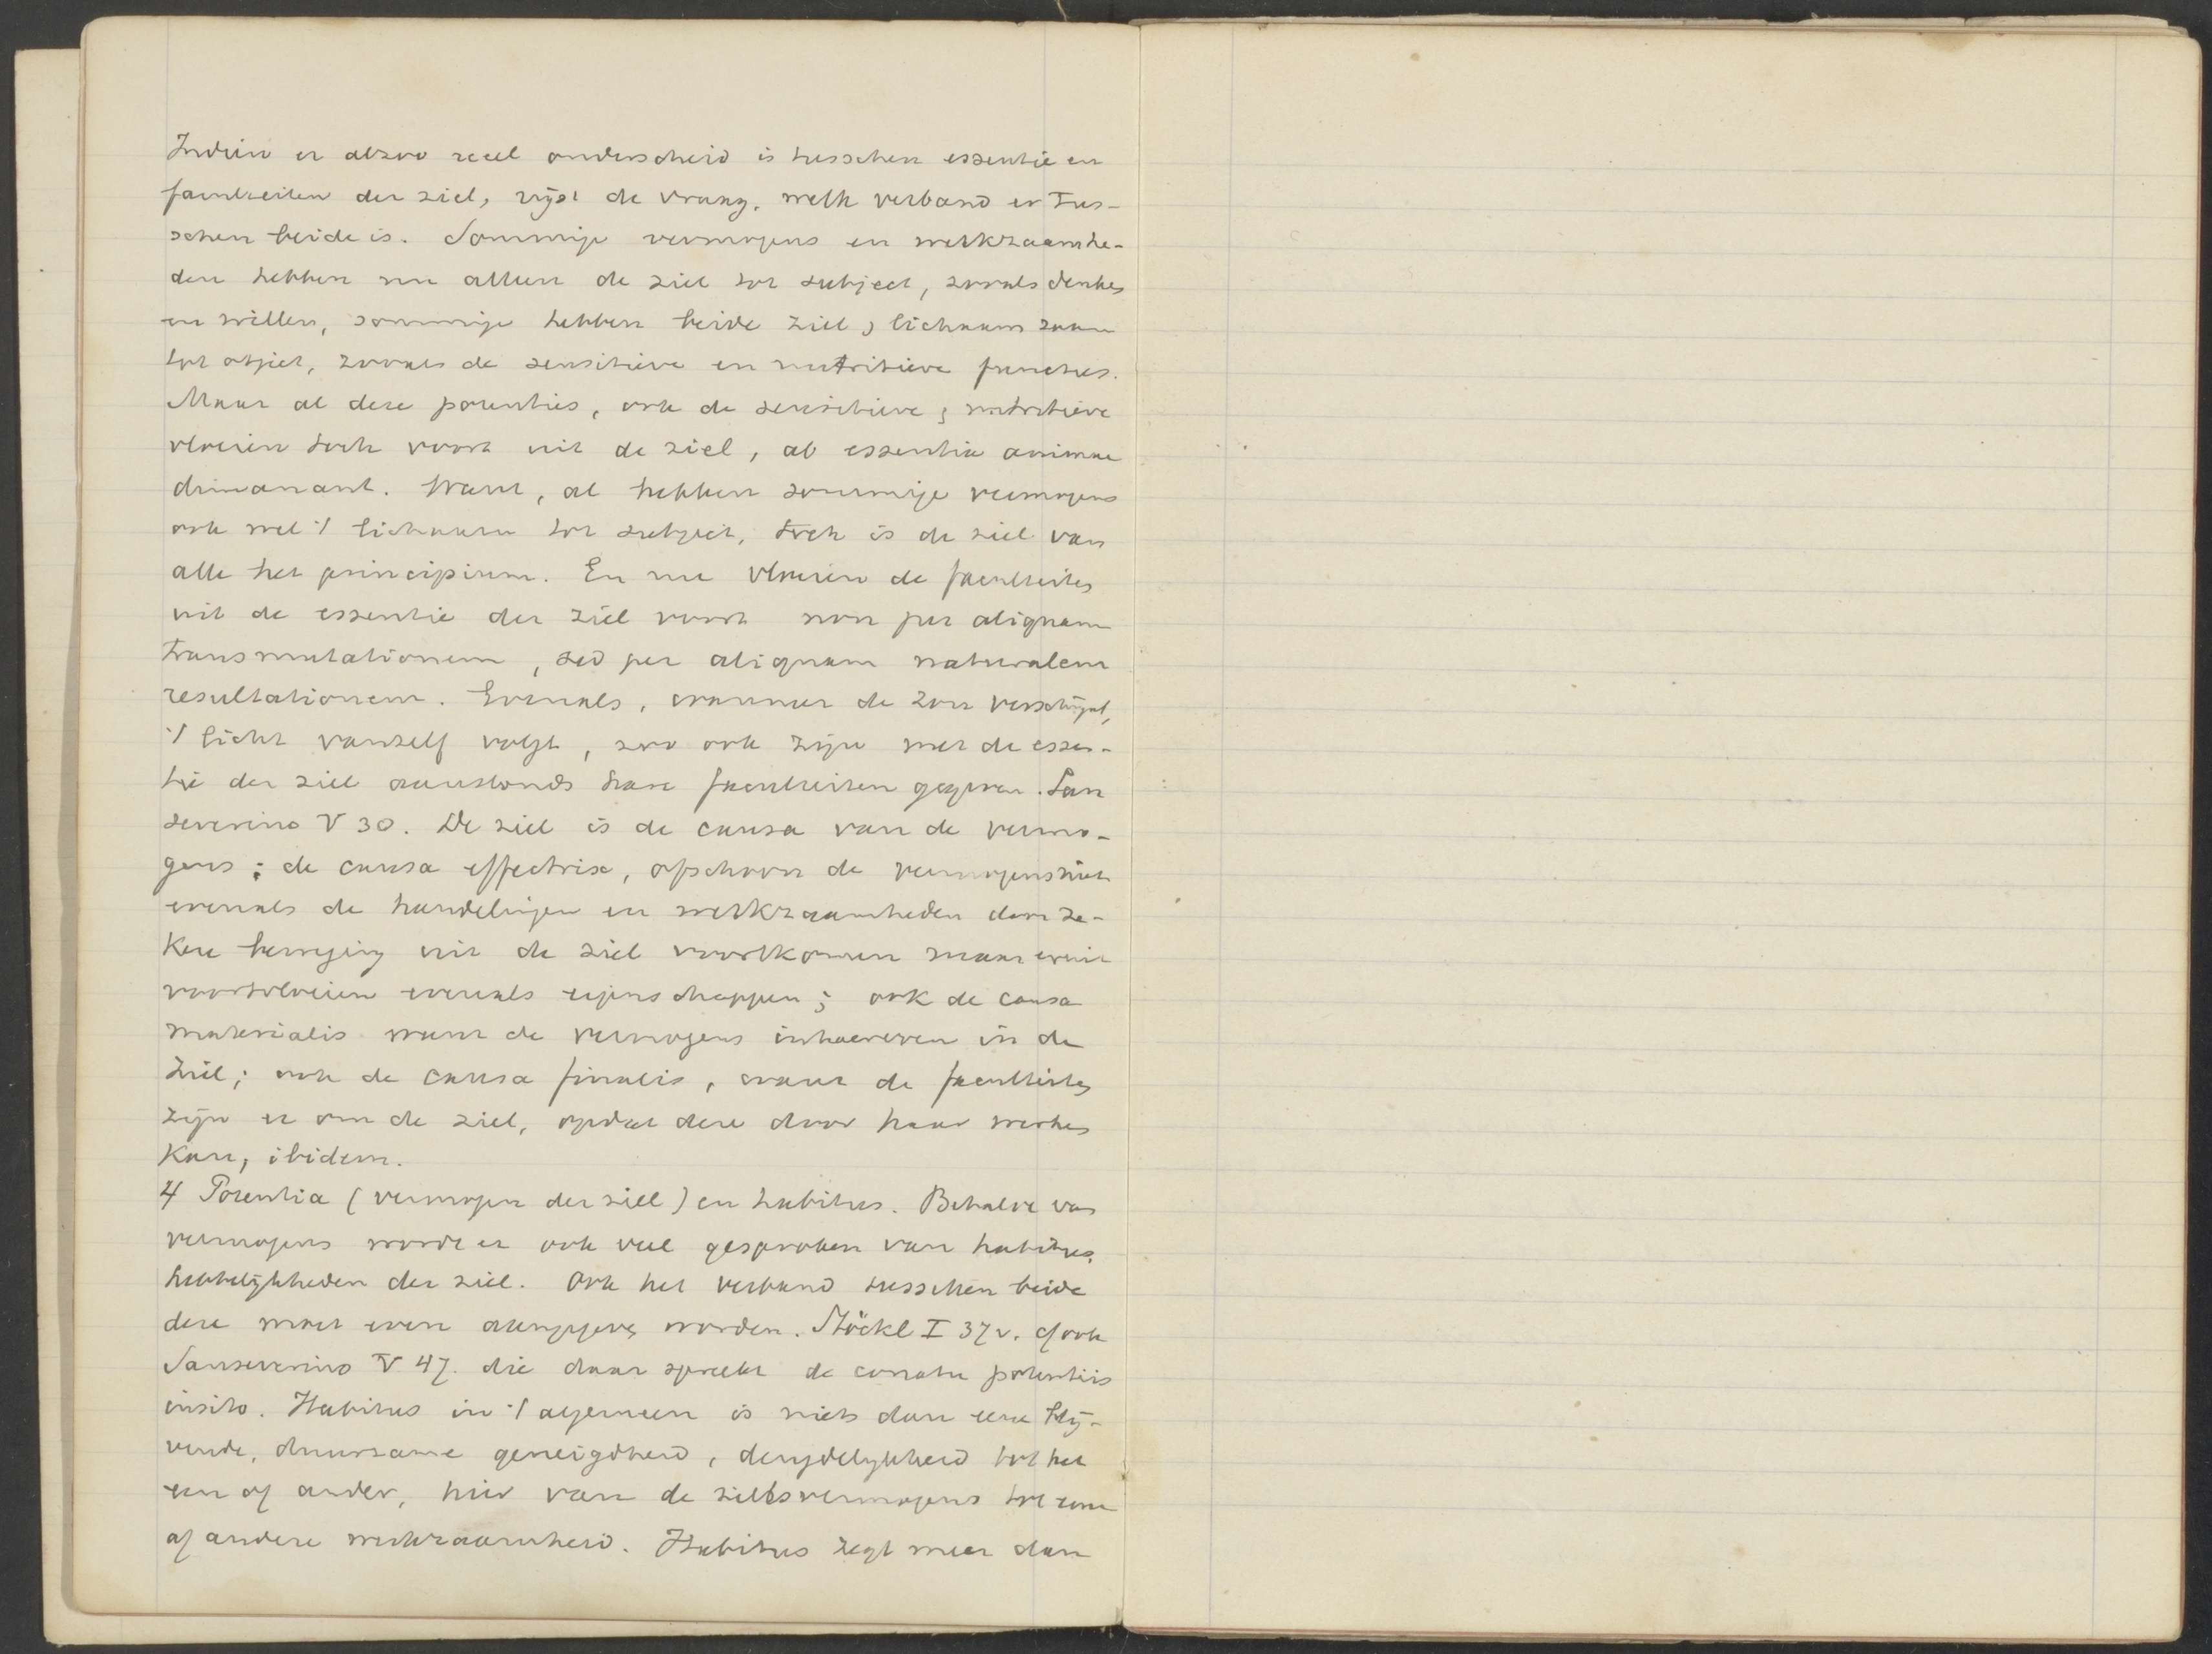 Indien er alzoo reeel onderscheid is tusschen essentie en
faculteiten der ziel, rijst de vraag, welk verband er tus-
schen beide is. Sommige vermogens en werkzaamhe-
den hebben nu alleen de ziel tot subject, zooals denken
en willen, sommige hebben beide ziel & lichaam saam
tot objiet, zooals de sensitieve en nutritieve functies.
Maar al deze potenties, ook de sensitieve & nutritieve
vloeien toch voort uit de ziel, ab essentia animae
dimanant. Want, al hebben sommige vermogens
ook wel 't lichaam tot subject, toch is de ziel van
alle het principium. En nu vloeien de faculteiten
uit de essentie der ziel voort non per aliquam
transmutationem, sed per aliquam naturalem
resultationem. Evenals, wanneer de zon verschijnt,
't licht vanzelf volgt, zoo ook zijn met de essen-
tie der ziel aanstonds hare faculteiten gegeven. San
severino V 30. De ziel is de causa van de vermo-
gens; de causa effectrix, ofschoon de vermogens niet
evenals de handelingen en werkzaamheden door ze-
kere beweging uit de ziel voortkomen maar eruit
voortvloeien evenals eigenschappen; ook de causa
materialis want de vermogens inhaereren in de
ziel; ook de causa finalis, want de faculteiten
zijn er om de ziel, opdat deze door haar werken
kan, ibidem.
4 Potentia (vermogen der ziel) en habitus. Behalve van
vermogens wordt er ook veel gesproken van habitus,
hebbelijkheden der ziel. Ook het verband tusschen beide
deze moet even aangegeven worden. Stöckl I 37v. cf ook
Sanseverino V 47. die daar spreekt de conatu potentiis
insito. Habitus in 't algemeen is niets dan eene blij-
vende, duurzame geneigdheid, dispositie tot het
een of ander, hier van de zielsvermogens tot eene
of andere werkzaamheid. Habitus zegt meer dan